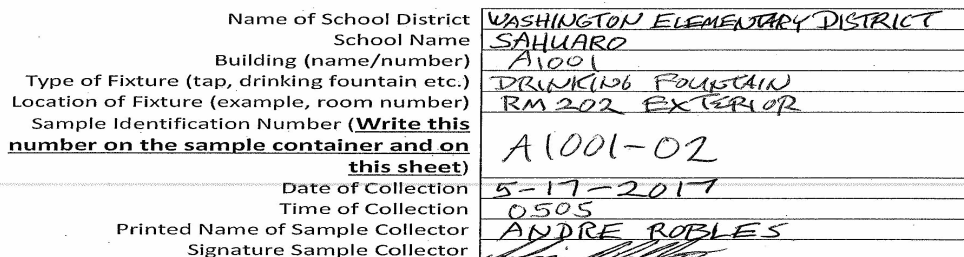 Name of School District WASHINGTON ELEMENTARY DISTRICT
School Name SAHUARO
Building (name/number) A1001
Type of Fixture (tap, drinking fountain etc.) DRINKING FOUNTAIN
Location of Fixture (example, room number) RM 202 EXTERIOR
Sample Identification Number (Write this
number on the sample container and on A1001-02
this sheet)
Date of Collection 5-17-2017
Time of Collection 0505
Printed Name of Sample Collector ANDRE ROBLES
Signature Sample Collector